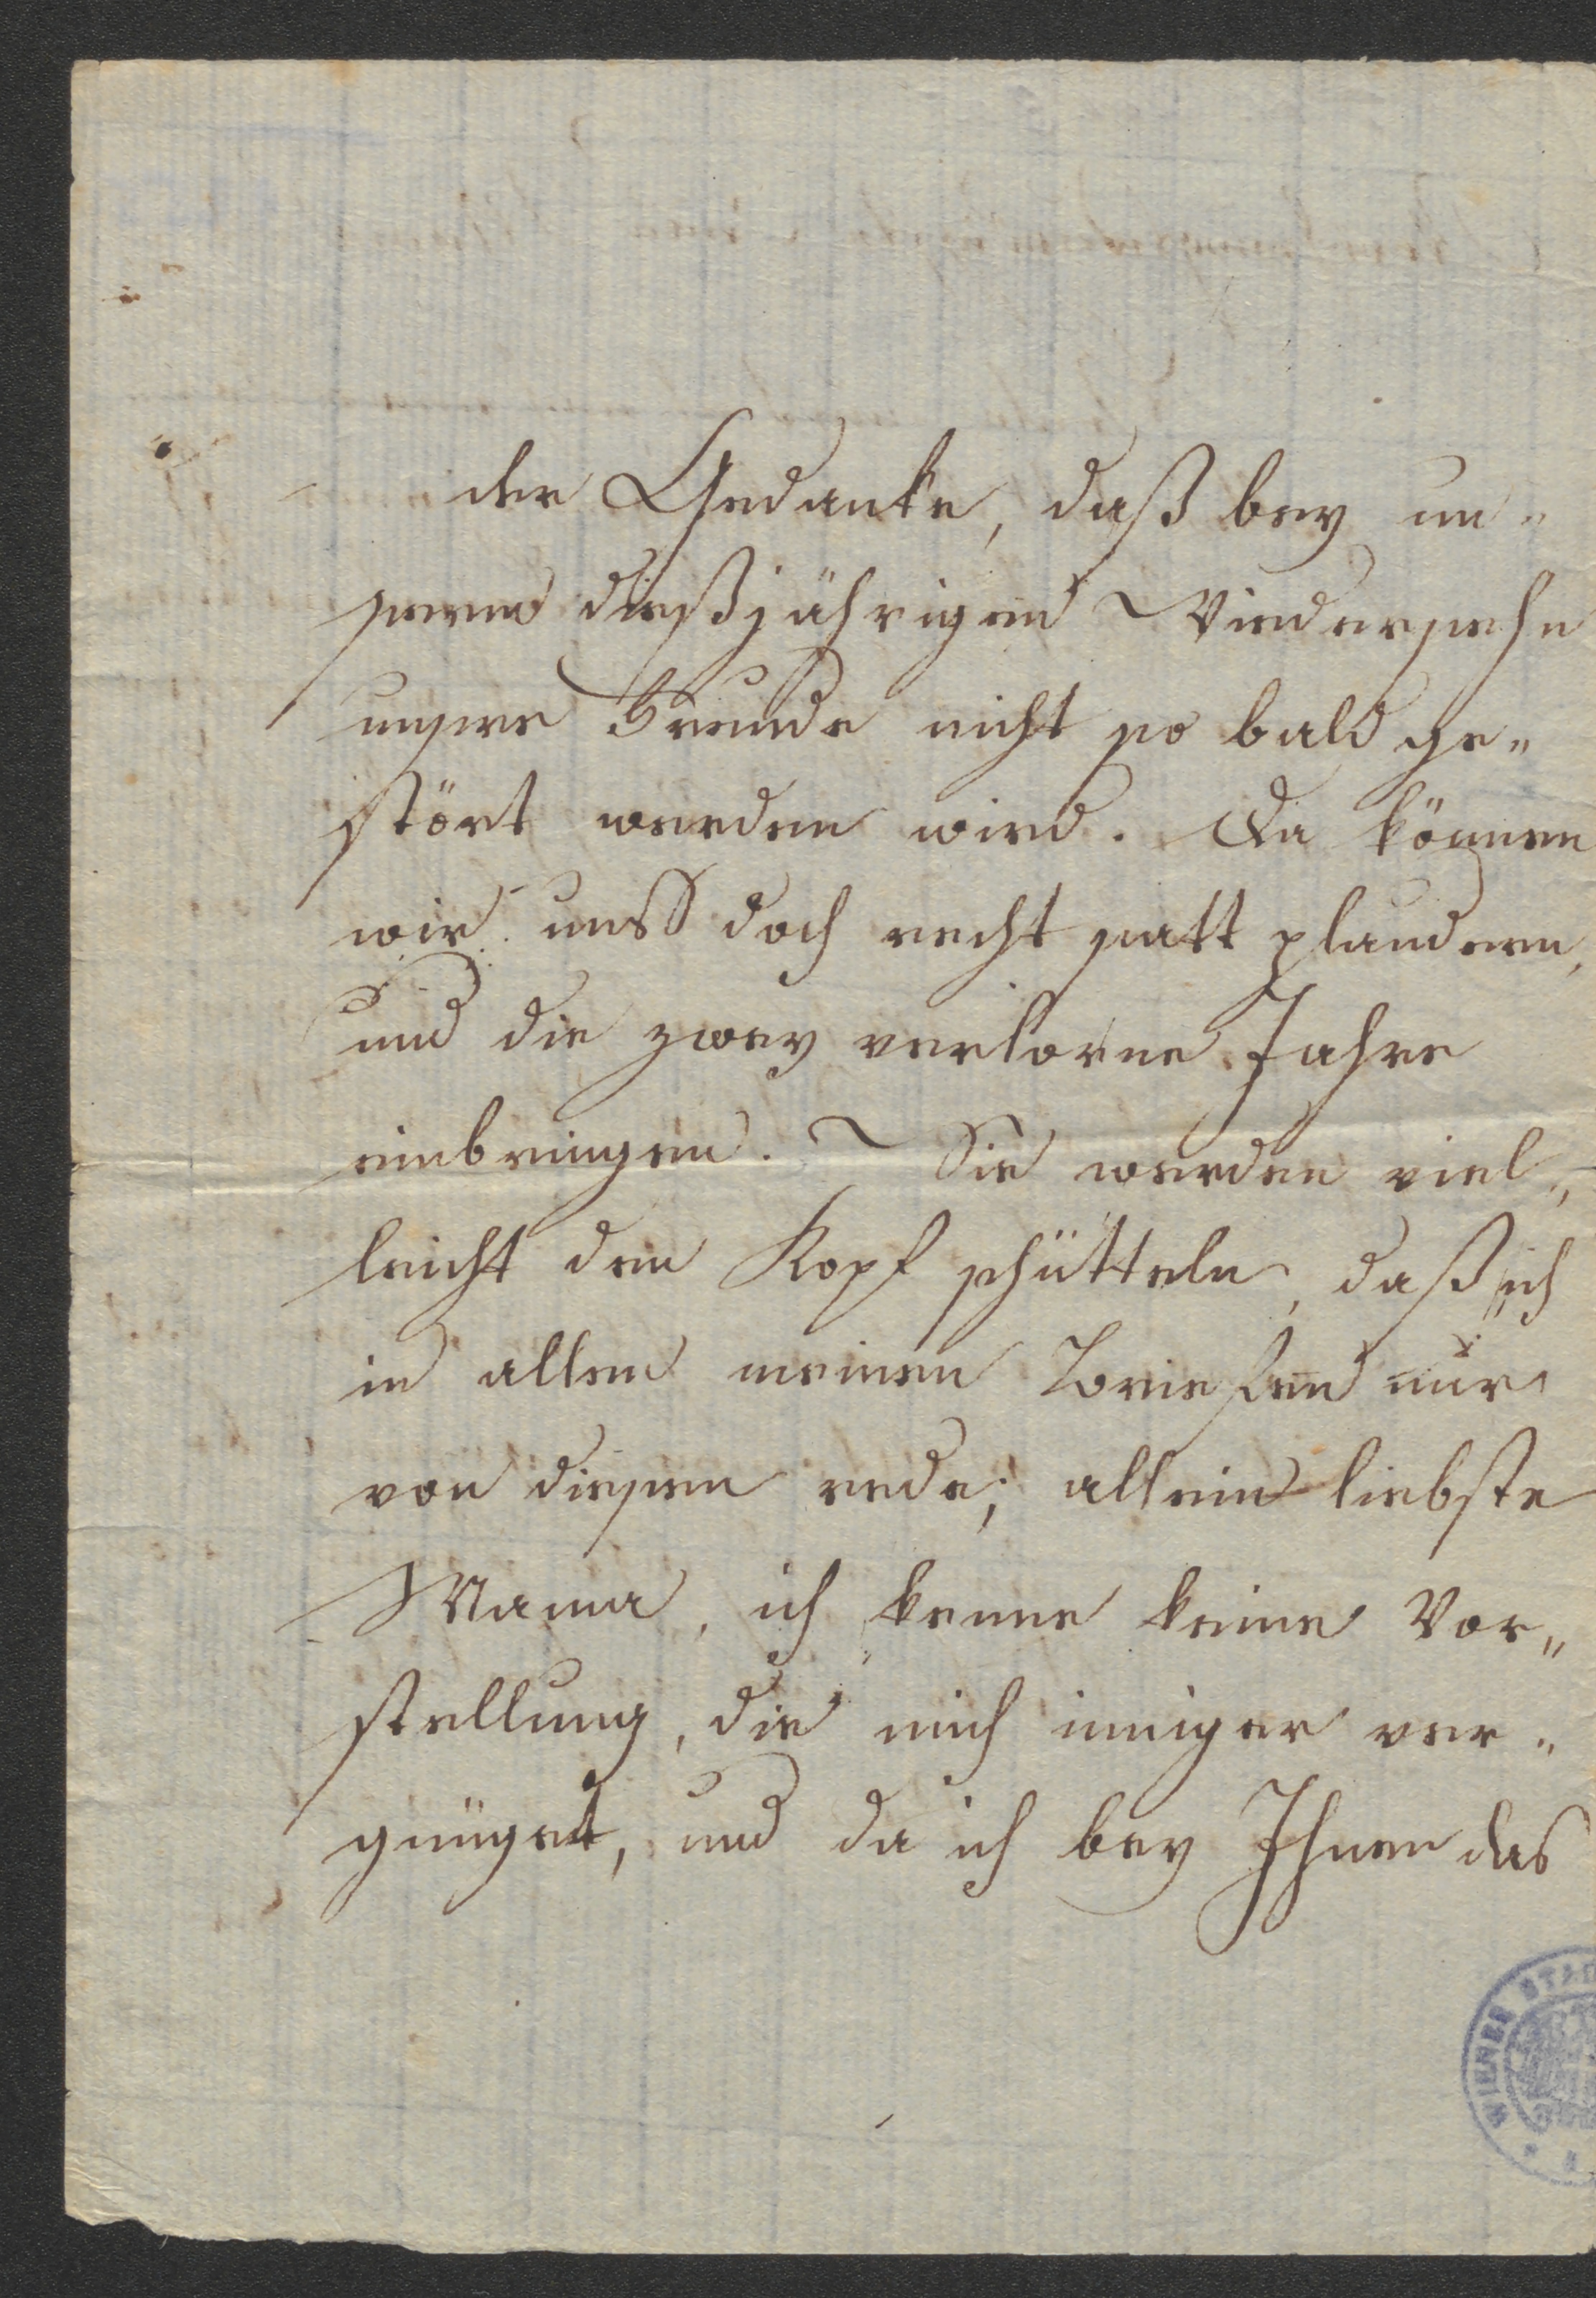 der Gedanke, daß bey un„
serem dießjährigen Wiedersehn
unsere Freude nicht so bald ge„
stört werden wird. Da können
wir unß doch recht satt plaudern,
und die zwey verlorne Jahre
einbringen. Sie werden viel„
leicht den Kopf schütteln, daß ich
in allen meinen Briefen nur
von diesem rede; allein liebste
Mama, ich kenne keine Vor„
stellung, die mich inniger ver„
gnüget, und da ich bey Ihnen das
WIENER STAD